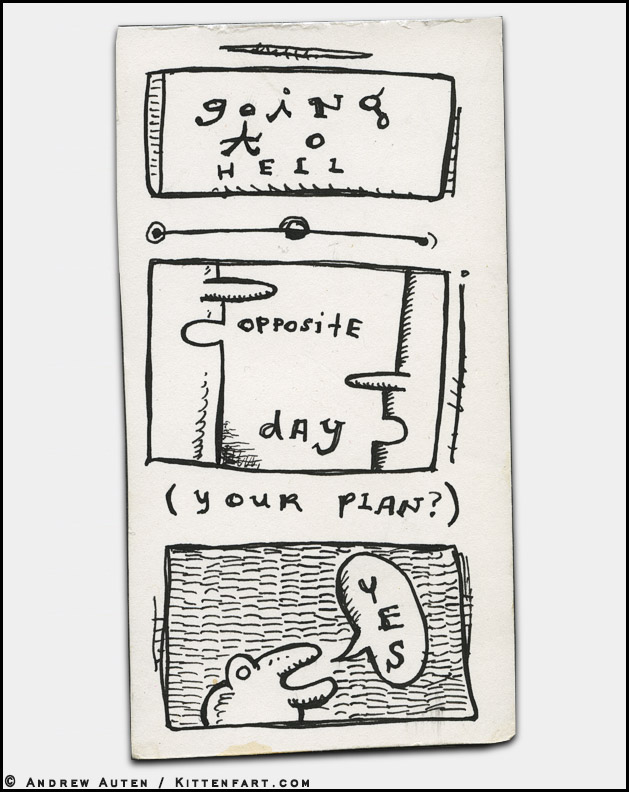 going
to
HELL
OPPOSITE
dAy
(YOUR PLAN?)
YES
© ANDREW AUTEN / KITTENFART.COM